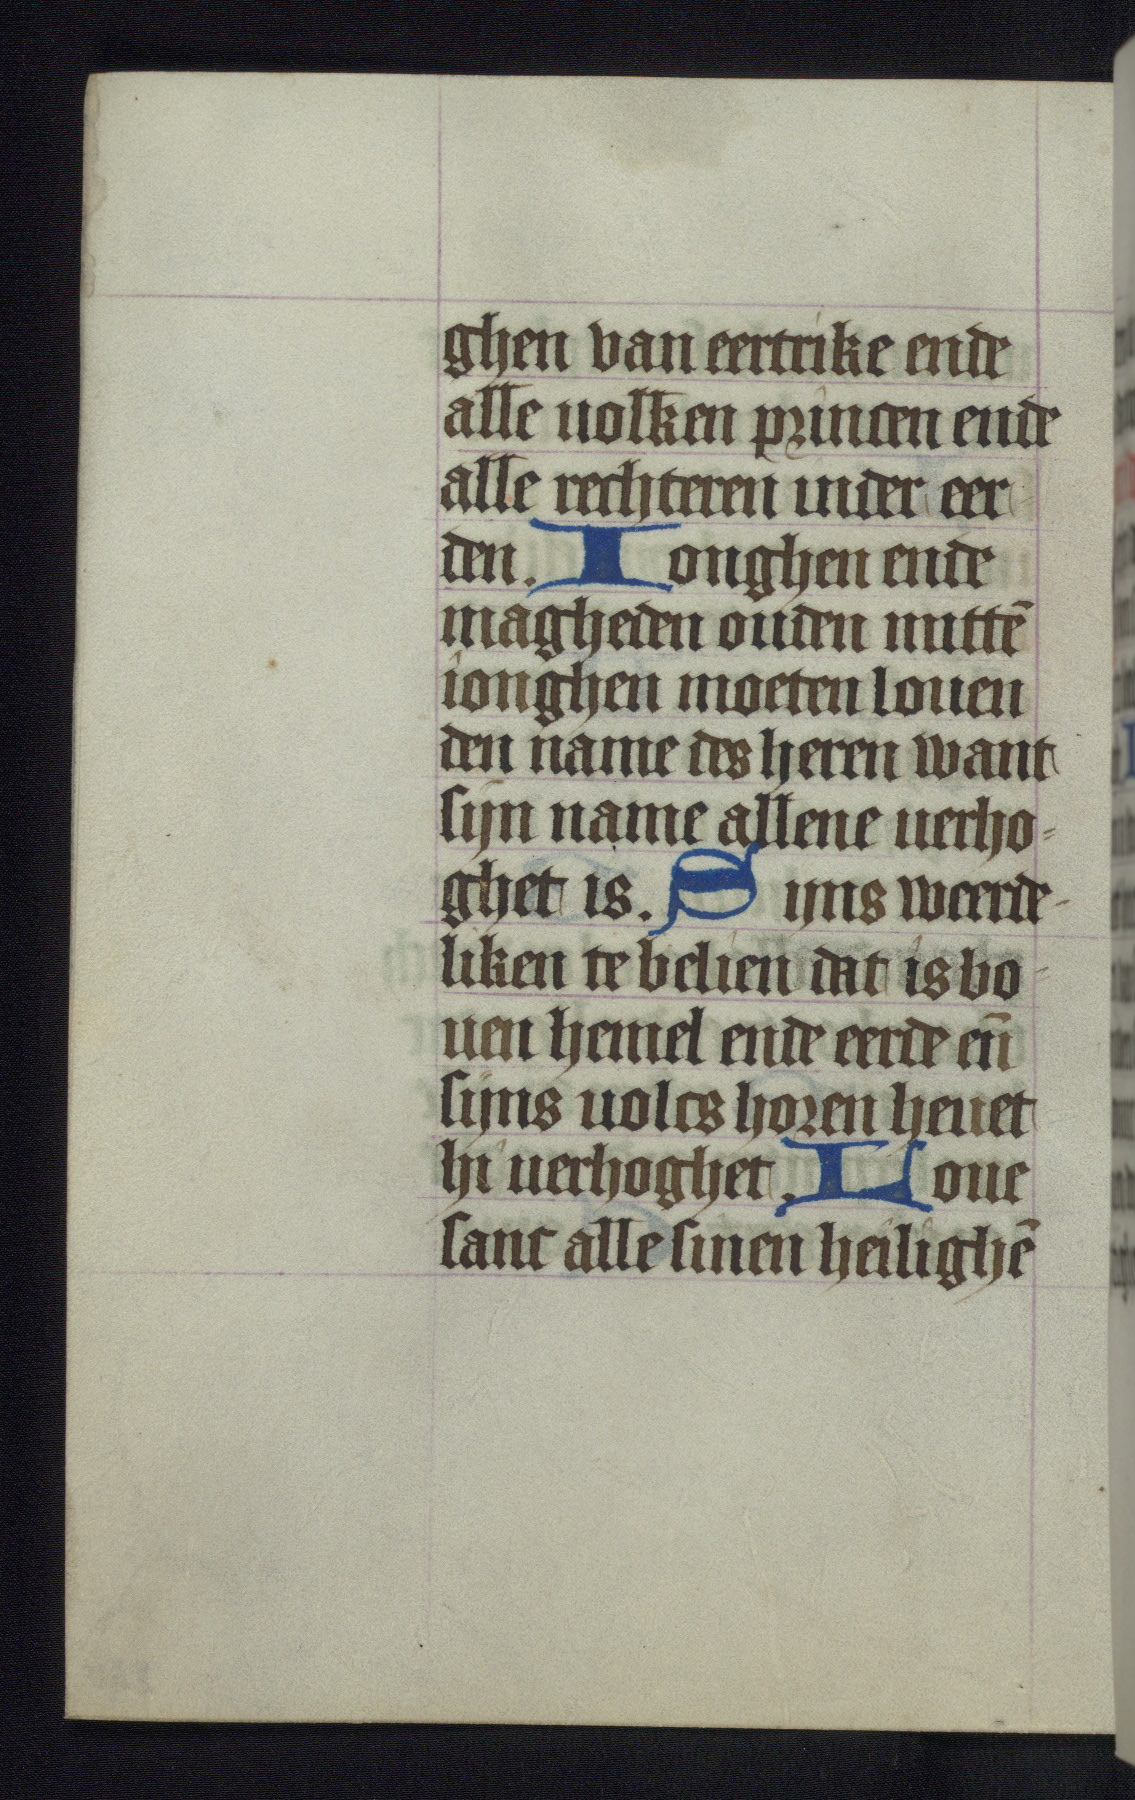 ghen van eertrike ende
alle uolken princen ende
alle rechteren inder eer
den. Ionghen ende
magheden ouden mittē
ionghen moeten louen
den name des heren want
sijn name allene uerho-
ghet is. Sijns weerde-
liken te belien dat is bo-
uen hemel ende eerde eñ
sijns uolcs horen heuet
hi uerhoghet. Loue
sanc alle sinen heilighē